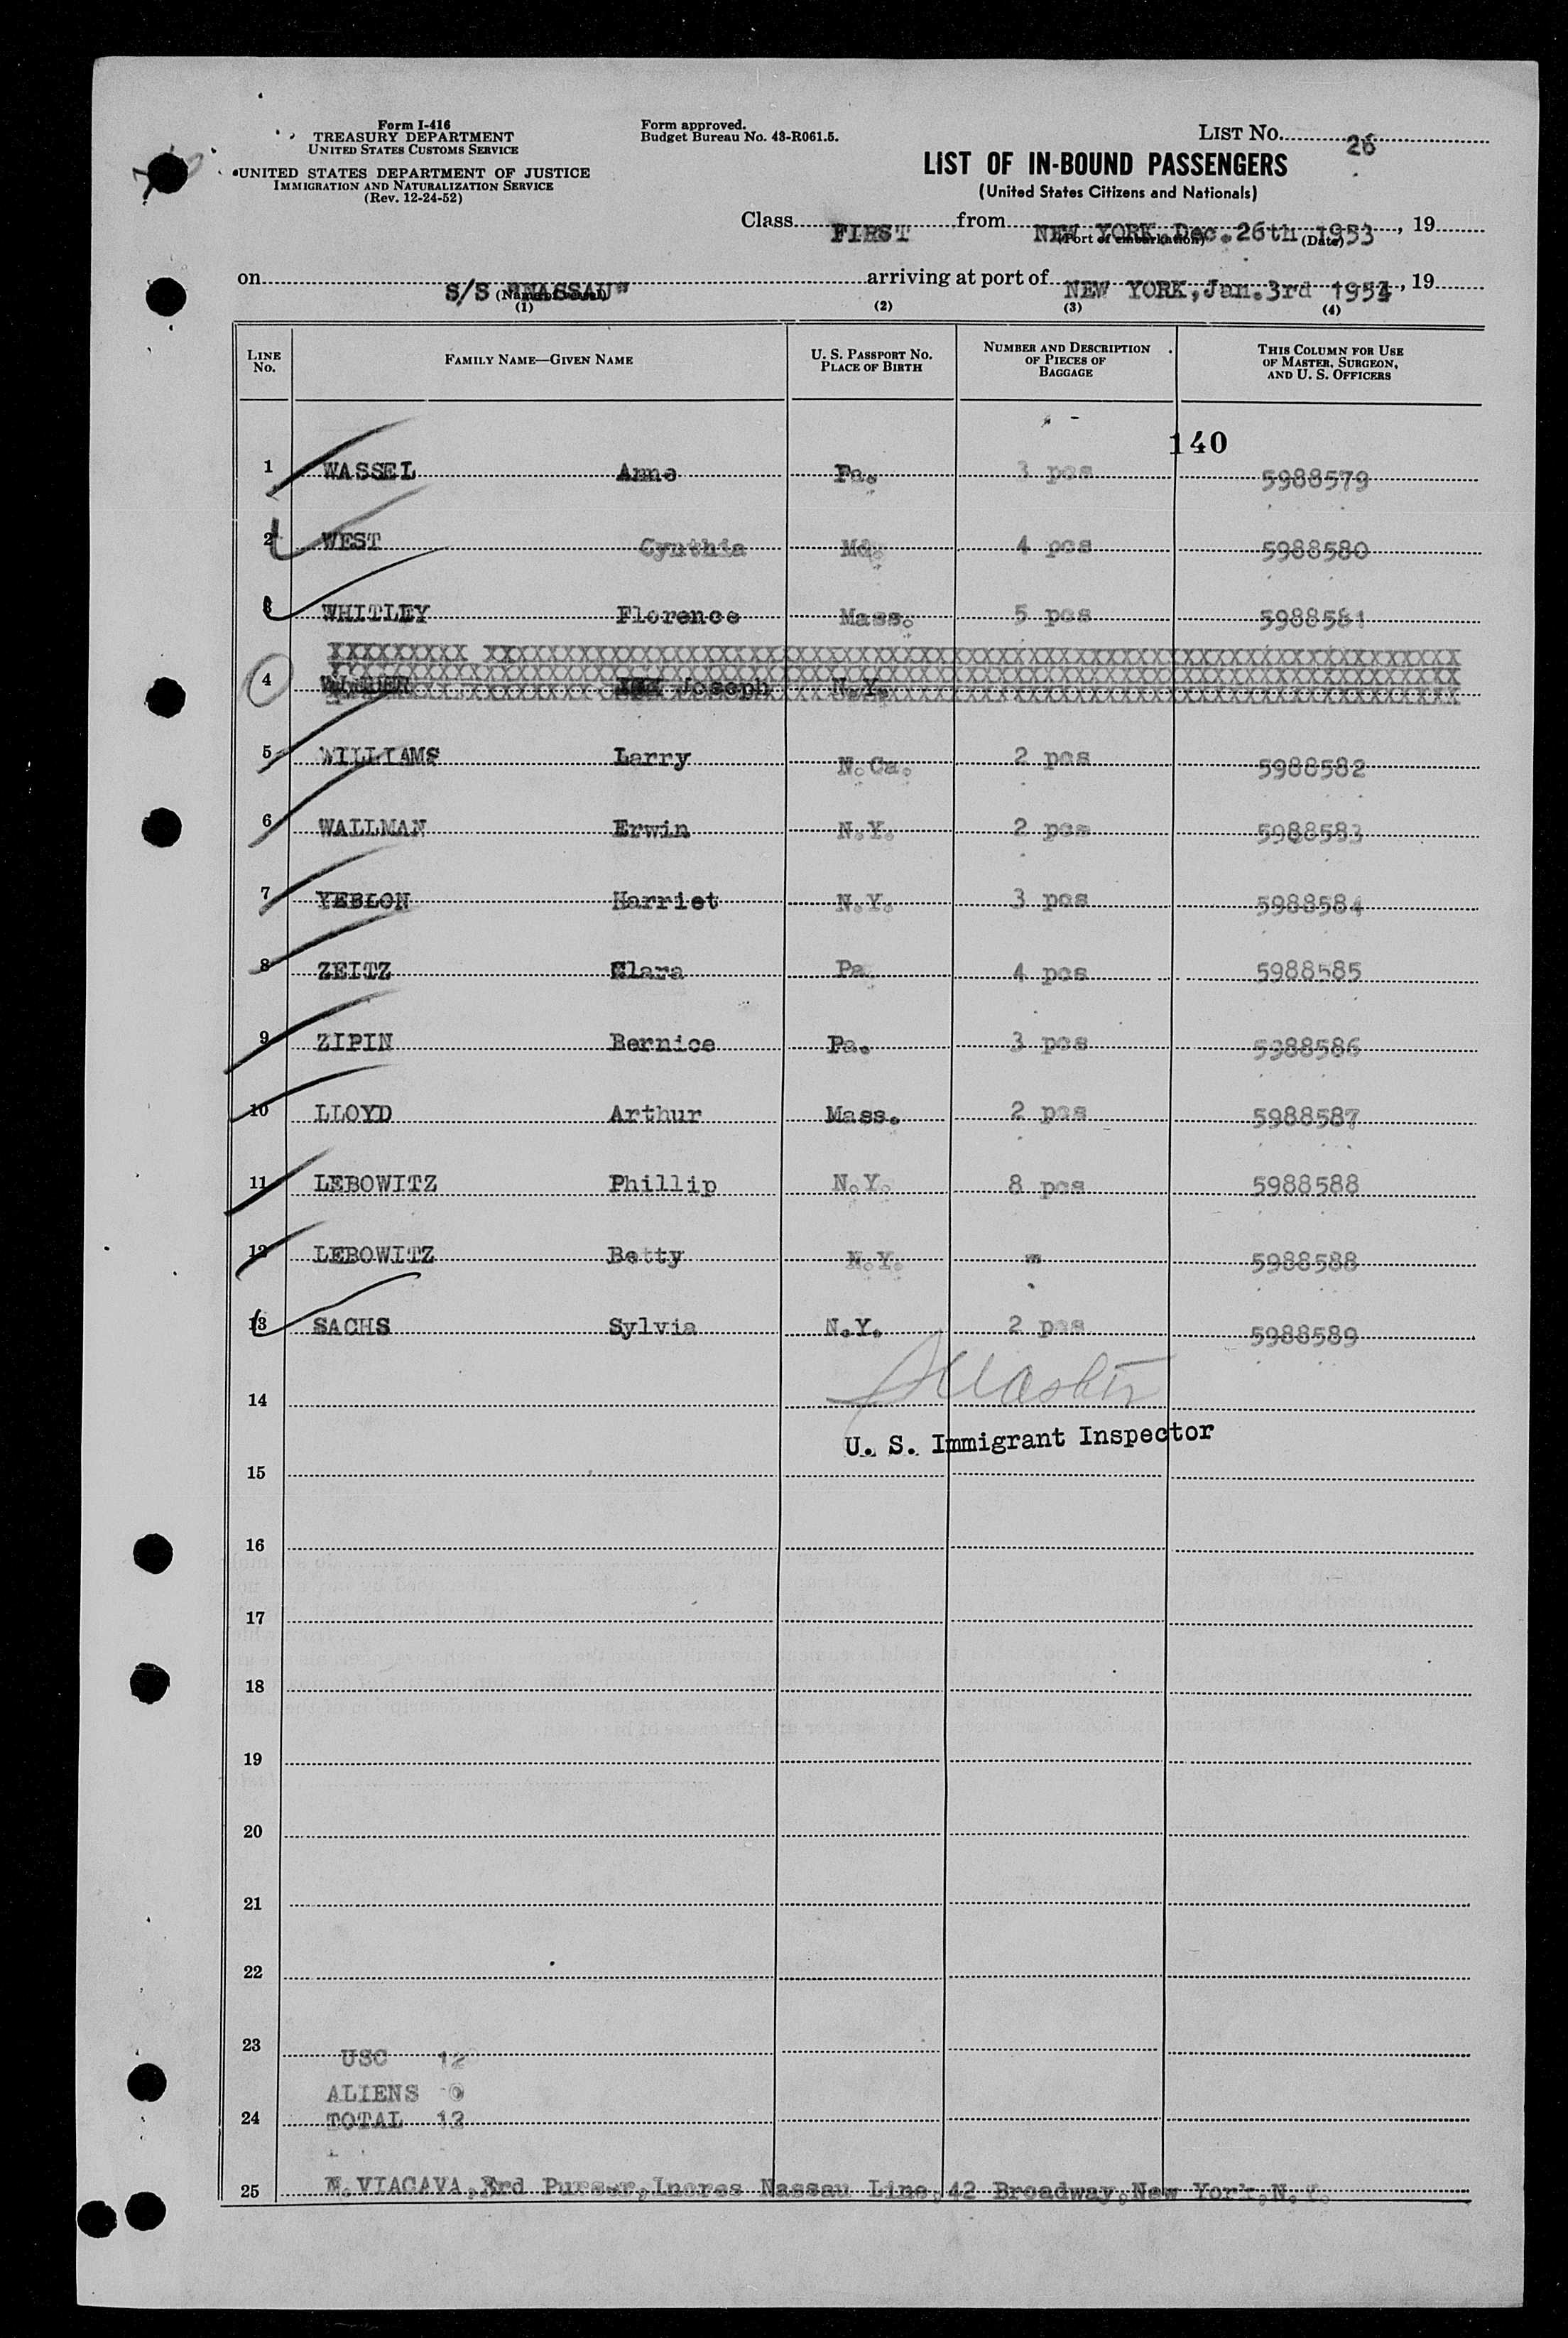 Form I-416
TREASURY DEPARTMENT
UNITED STATES CUSTOMS SERVICE
UNITED STATES DEPARTMENT OF JUSTICE
IMMIGRATION AND NATURALIZATION SERVICE
(Rev. 12-24-52)
Form approved.
Budget Bureau No. 43-R061.5.
LIST No. 26
LIST OF IN-BOUND PASSENGERS
(United States Citizens and Nationals)
Class FIRST from NEW YORK, Dec. 26th 1953, 19
(Port of embarkation) (Date)
on S/S "NASSAU" arriving at port of NEW YORK, Jan. 3rd 1954, 19
(1) (2) (3) (4)
LINE No. FAMILY NAME—GIVEN NAME U. S. PASSPORT NO. PLACE OF BIRTH NUMBER AND DESCRIPTION OF PIECES OF BAGGAGE THIS COLUMN FOR USE OF MASTER, SURGEON, AND U. S. OFFICERS
140
1 WASSEL Anne Pa. 3 pcs 5988579
2 WEST Cynthia Md. 4 pcs 5988580
3 WHITLEY Florence Mass. 5 pcs 5988581
4 Joseph N.Y.
5 WILLIAMS Larry N.Ca. 2 pcs 5988582
6 WALLMAN Erwin N.Y. 2 pcs 5988583
7 YEBLON Harriet N.Y. 3 pcs 5988584
8 ZEITZ Clara Pa 4 pcs 5988585
9 ZIPIN Bernice Pa. 3 pcs 5988586
10 LLOYD Arthur Mass. 2 pcs 5988587
11 LEBOWITZ Phillip N.Y. 8 pcs 5988588
12 LEBOWITZ Betty N.Y. " 5988588
13 SACHS Sylvia N.Y. 2 pcs 5988589
14
U. S. Immigrant Inspector
15
16
17
18
19
20
21
22
23 USC 12
ALIENS 0
24 TOTAL 12
25 N. VIACAVA, 3rd Purser, Incres Nassau Line, 42 Broadway, New York, N.Y.